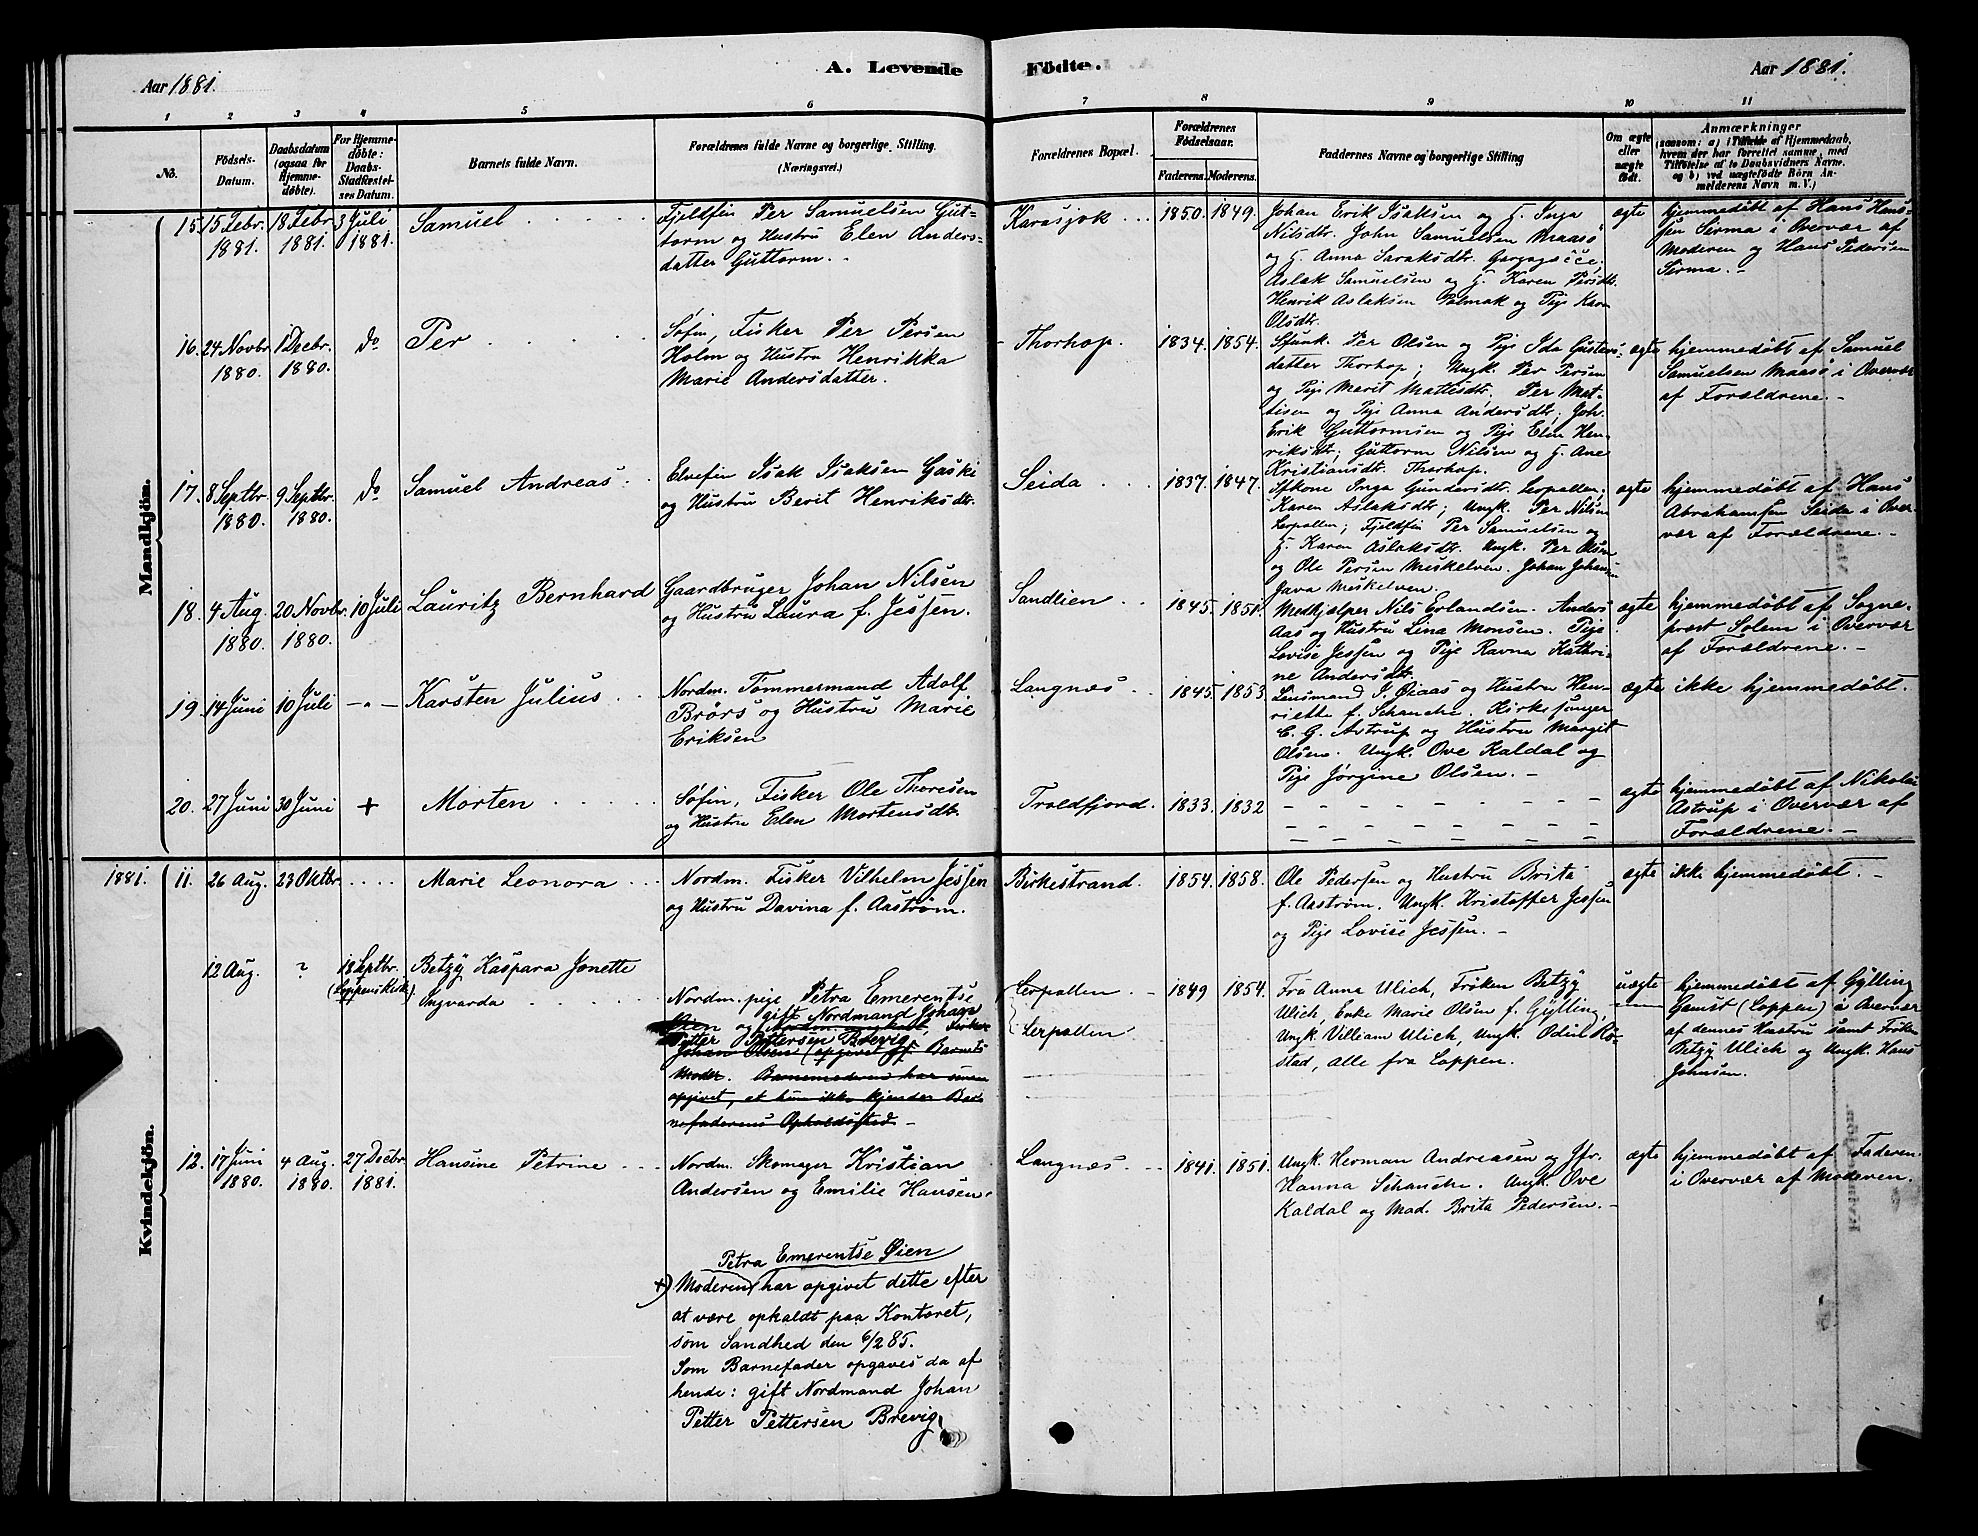 A. Levende Födte.
Aar 1881.
Aar 1881.
1 2 3 4 5 6 7 8 9 10 11
No.
Födsels-
Datum.
Daabsdatum
(ogsaa for
Hjemme-
döbte).
For Hjemme-
döbte:
Daabs-
Stadfæstel-
ses Datum.
Barnets fulde Navn.
Forældrenes fulde Navne og borgerlige Stilling.
(Næringsvei.)
Forældrenes Bopæl.
Forældrenes
Födselsaar.
Faderens. Moderens.
Faddernes Navne og borgerlige Stilling
Om ægte
eller
uægte
födt.
Anmærkninger
(saasom: a) i Tilfælde af Hjemmedaab,
hvem der har forrettet samme, med
Tilföielse af to Daabsvidners Navne.
og b) ved uægtefödte Börn An-
melderens Navn m. V.)
Mandkjön.
15. 15 Febr. 1881. 18 Febr. 1881. 3 Juli 1881.
Samuel
Fjeldfin Per Samuelsen Gut-
torm og Hustru Elen Anders-
datter Guttorm. -
Karasjok 1850. 1849.
Johan Erik Isaksen og H. Inga
Nilsdtr. John Samuelsen Maasø
og H. Anna Saraksdtr.
Aslak Samuelsen og H. Karen Persdtr.
Henrik Aslaksen Polmak og Pige Karn
Olsdtr.
ægte
hjemmedøbt af Hans Han-
sen Sirma i Overvær af
Moderen og Hans Pedersen
Sirma. -
16. 24 Novbr. 1880. 1 Decbr. 1880. do
Per
Søfin, Fisker Per Persen
Holm og Hustru Henrikka
Marie Andersdatter.
Thorhop. 1834. 1854.
Per Olsen og Pige Ida Gustavs-
datter Thorhop; Ungk. Per Persen
og Pige Marit Mattisdtr. Per Mat-
tisen og Pige Anna Andersdtr; Joh.
Erik Guttormsen og Pige Elen Hen-
riksdtr; Guttorm Nilsen og H. Ane
Kristiansdtr. Thorhop.
ægte
hjemmedøbt af Samuel
Samuelsen Maasø i Overvær
af Forældrene. -
17. 8 Septbr. 1880. 9 Septbr. 1880. do
Samuel Andreas
Elvefin Isak Isaksen Gaski
og Hustru Berit Henriksdtr.
Seida 1837. 1847.
Inga Gundersdtr. Lerpollen;
Karen Aslaksdtr; Ungk. Per Nilsen
Lerpollen; Fjeldfin Per Samuelsen og
H. Karen Aslaksdtr. Ungk. Per Olsen
og Ole Persen Meskelven. Johan Johansen
Java Meskelven.
ægte
hjemmedøbt af Hans
Abrahamsen Seida i Over-
vær af Forældrene. -
18. 4 Aug. 1880. 20 Novbr. 1880. 10 Juli
Lauritz Bernhard
Gaardbruger Johan Nilsen
og Hustru Laura f. Jessen.
Sandlien 1845. 1851.
Medhjælper Nils Erlandsen. Anders
Aas og Hustru Lina Monsen. Pige
Lovise Jessen og Pige Ravna Kathri-
ne Andersdtr.
ægte
hjemmedøbt af Sogne-
præst Solem i Overvær
af Forældrene. -
19. 14 Juni 10 Juli - " -
Karsten Julius
Nordm. Tømmermand Adolf
Brørs og Hustru Marie
Eriksen
Langnæs 1845. 1853
Lensmand J. Øiaas og Hustru Hen-
riette f. Schanche. Kirkesanger
C. G. Astrup og Hustru Margit
Olsen. Ungk. Ove Kaldal og
Pige Jørgine Olsen. -
ægte
ikke hjemmedøbt.
20. 27 Juni 30 Juni +
Morten
Søfin, Fisker Ole Thoresen
og Hustru Elen Mortensdtr.
Troldfjord. 1833. 1832
ægte
hjemmedøbt af Nikolai
Astrup i Overvær af
Forældrene. -
Kvindekjön.
1881. 11. 26 Aug. 23 Oktbr.
Marie Leonora
Nordm. Fisker Vilhelm Jessen
og Hustru Davina f. Aastrøm.
Birkestrand. 1854. 1858.
Ole Pedersen og Hustru Brita
f. Aastrøm. Ungk. Kristoffer Jessen
og Pige Lovise Jessen. -
ægte
ikke hjemmedøbt. -
12 Aug. ? 18 Septbr. (Loppens Kirk.)
Betzy Kaspara Jonette
Ingvarda
Nordm. pige Petra Emerentse
gift Nordmand Johan
Øien og Nordm. ungkarl, Fisker
Petter Pettersen Brevig
Johan Olsen (opgivet af Barnets
Moder. Barnemoderen har senere
opgivet, at hun ikke kjender Bar-
nefaderens Opholdssted -
Lerpollen
Lerpollen
1849 1854.
Fru Anna Ulich, Frøken Betzy
Ulich, Enke Marie Olsen f. Gylling,
Ungk. Villiam Ulich, Ungk. Odin Rø-
stad, alle fra Loppen.
uægte
hjemmedøbt af Gylling
Gamst (Loppen) i Overvær
af dennes Hustru samt Frøken
Betzy Ulich og Ungk. Hans
Johnsen.
12. 17 Juni 1880. 4 Aug. 1880. 27 Decbr. 1881.
Hansine Petrine
Nordm. Skomager Kristian
Andersen og Emilie Hansen.
Langnæs. 1841. 1851.
Ungk. Herman Andreasen og Jfr.
Hanna Schanche. Ungk. Ove
Kaldal og Mad. Brita Pedersen. -
ægte
hjemmedøbt af Faderen
i Overvær af Moderen.
Petra Emerentse Øien
+) Moderen har opgivet dette efter
at være opkaldt paa Kontoret,
som Sandhed den 6/2 85.
Som Barnefader opgaves da af
hende: gift Nordmand Johan
Petter Pettersen Brevig.